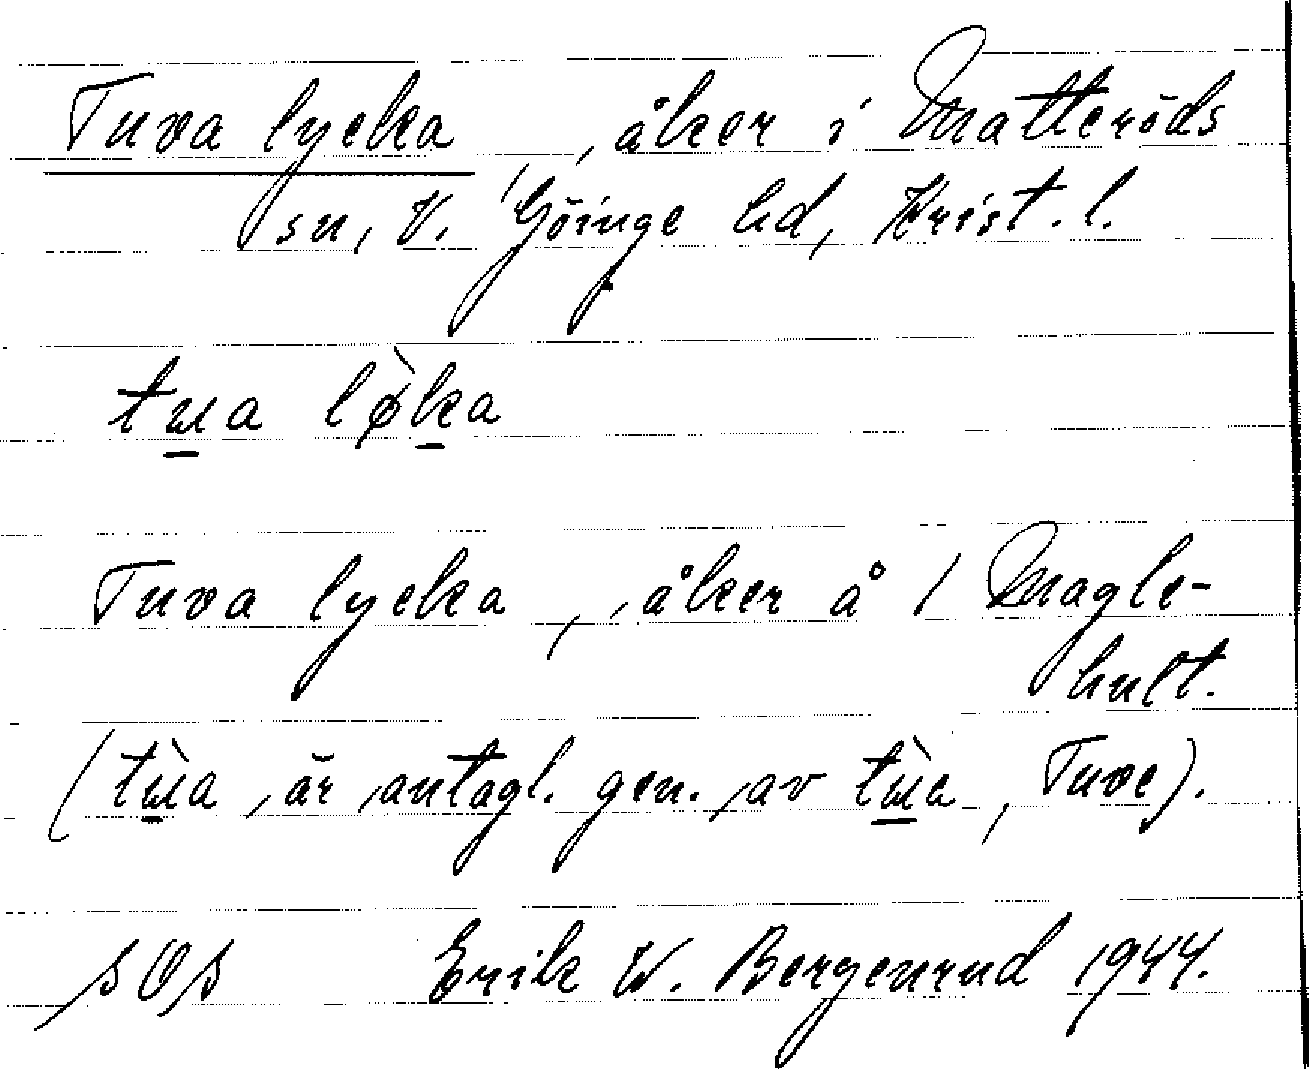 Tuva lycka, åker i Matteröds
sn, V. Göinge hd, Krist. l.
tua lø̀ka
Tuva lycka, åker å 1 Magle-
hult.
(tùa är antagl. gen. av tùa, Tuve).
SOS Erik W. Bergenrud 1944.